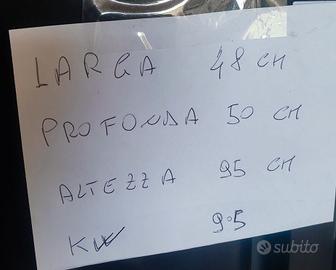 LARGA 48 CM
PROFONDA 50 CM
ALTEZZA 95 CM
KW 9.5
subito